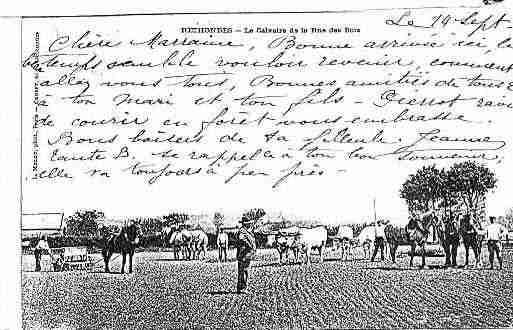 RETHONDES — Le Calvaire de la Rue des Bois
Le 19 Sept.
Chère Marraine, Bonne arrivée ici, le
beau temps semble vouloir revenir, comment
allez vous tous, Bonnes amitiés de tous à
à ton Mari et ton fils - Pierrot ravi
de courir en forêt vous embrasse.
Bons baisers de ta filleule Jeanne
Tante B. se rappelle à ton bon souvenir,
elle va toujours à peu près -